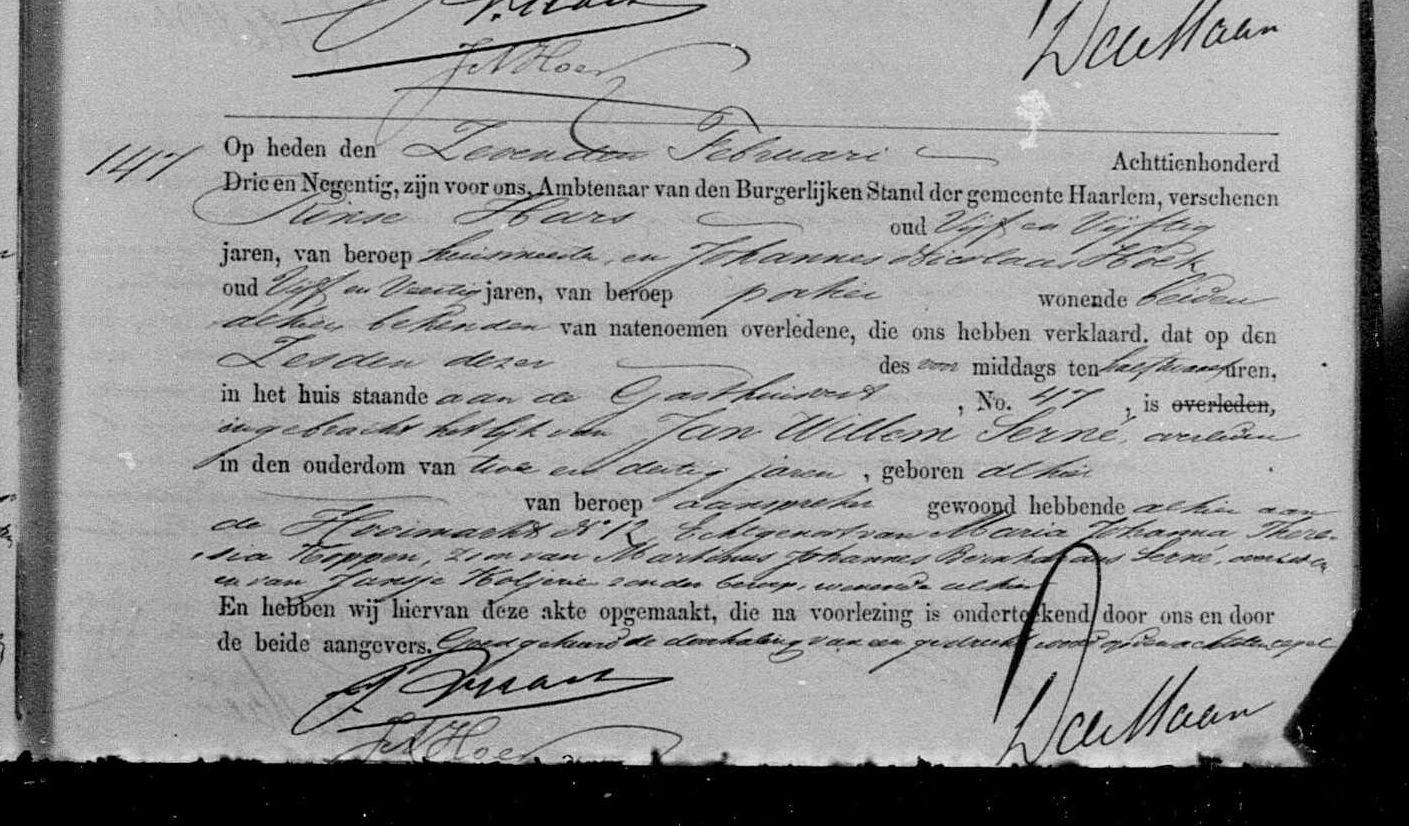 J.N. Hoek
D de Maan
147
Op heden den Zevenden Februari Achttienhonderd
Drie en Negentig, zijn voor ons, Ambtenaar van den Burgerlijken Stand der gemeente Haarlem, verschenen
oud Vijf en Vijftig
jaren, van beroep huismeester, en Johannes Nicolaas Hoek
oud Vijf en Veertig jaren, van beroep portier wonende beiden
alhier, bekenden van natenoemen overledene, die ons hebben verklaard. dat op den
Zesden dezer des voor middags ten half twaalf uren,
in het huis staande aan de Gasthuisvest, No. 47, is overleden,
ingebracht het lijk van Jan Willem Serné, overleden
in den ouderdom van twee en dertig jaren, geboren alhier
van beroep aanspreker gewoond hebbende alhier aan
de Hooimarkt No 12, Echtgenoot van Maria Johanna There-
sia Koppen, zoon van Martinus Johannes Bernhardus Serné, overleden
en van Jansje Holjerie zonder beroep, wonende alhier
En hebben wij hiervan deze akte opgemaakt, die na voorlezing is onderteekend door ons en door
de beide aangevers. Goedgekeurd de doorhaling van een gedrukt woord op den achtsten regel
J.N. Hoek
D de Maan